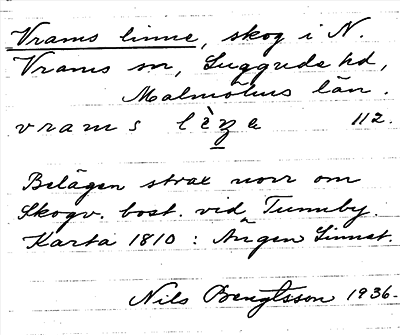 Vrams linne, skog i N.
Vrams sn, Luggude hd,
Malmöhus län.
vrams lèṉe 112.
Belägen strax norr om
Skogv. bost. vid Tunneby.
Karta 1810 : Ängen Linnet.
Nils Bengtsson 1936.